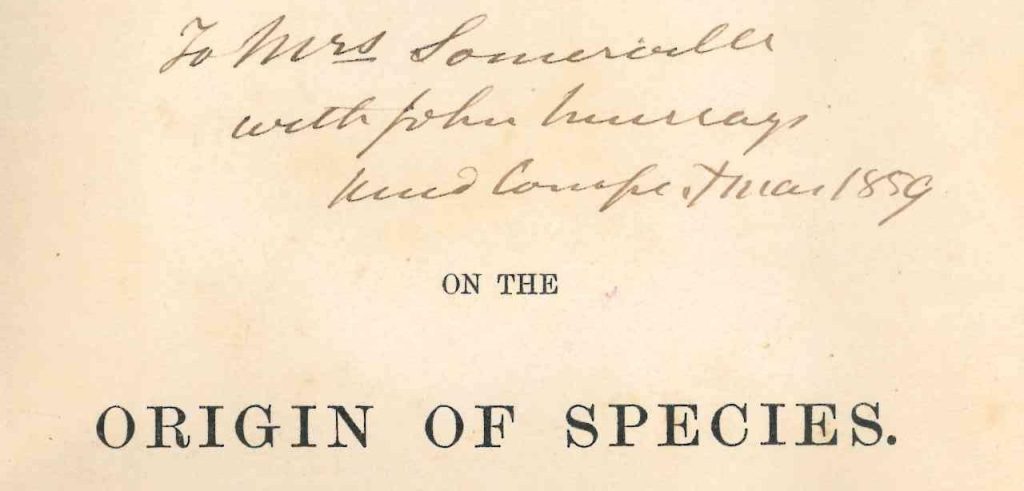 To Mrs Somerville
with John Murrays
kind Comps Xmas 1859
ON THE
ORIGIN OF SPECIES.